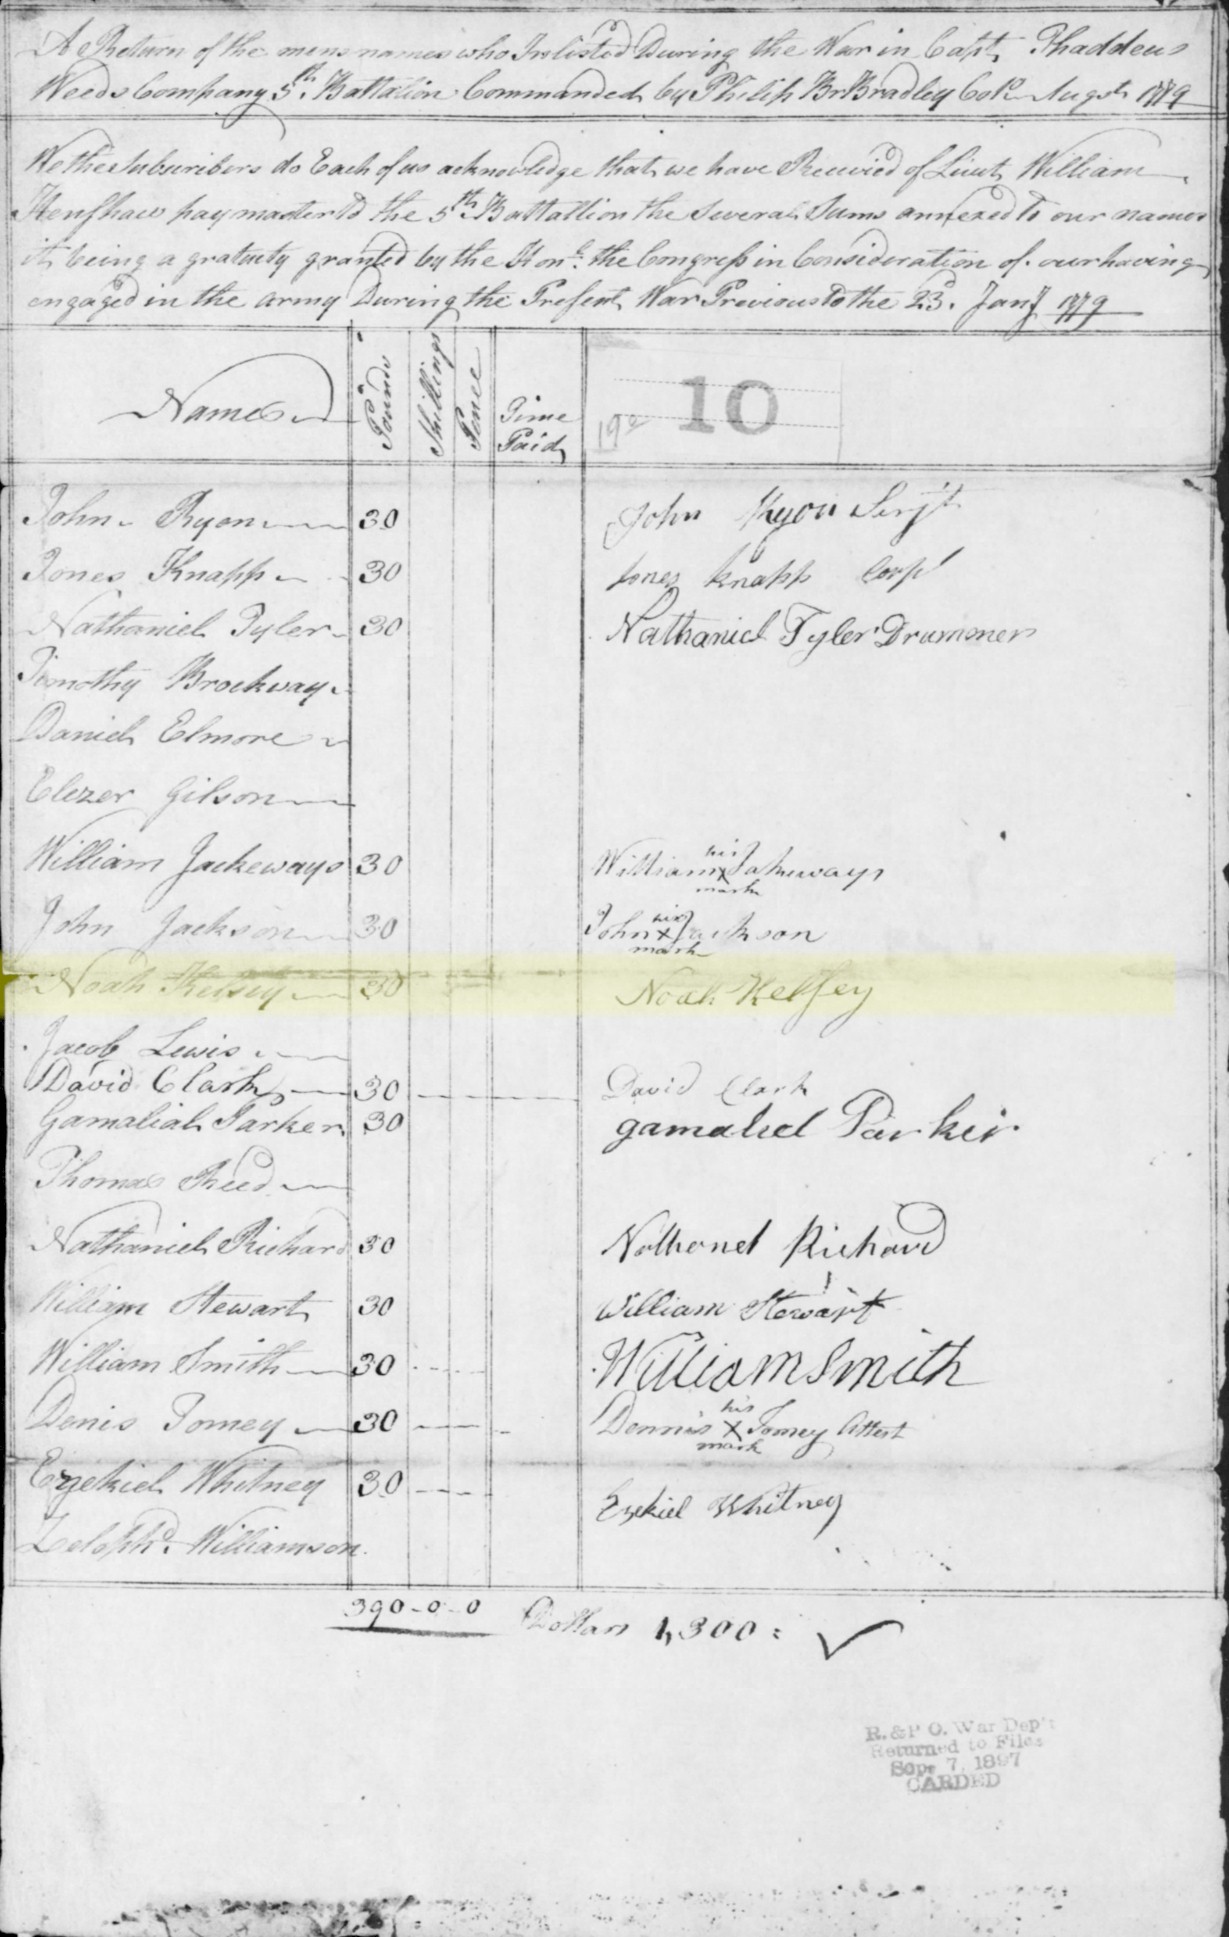 A Return of the mens names who Inlisted During the War in Capt. Thaddeus
Weeds Company 5th. Battalion Commanded by Philip Br Bradley Col. Augst 1779
We the Subscribers do Each of us acknowledge that we have Received of Lieut William
Henshaw paymaster to the 5th. Battallion the Several Sums annexed to our names
it being a gratuity granted by the Honle. the Congress in Consideration of our having
engaged in the army During the Present War Previous to the 23d. Jany 1779
Names Pounds Shillings Pence Time Paid 10
John Ryon 30 John Ryon Serjt
Jones Knapp 30 Jones Knapp Corpl
Nathaniel Tyler 30 Nathaniel Tyler Drummer
Timothy Brockway
Daniel Elmore
Elezer Gilson
William Jackeways 30 William his X mark Jakeways
John Jackson 30 John his X mark Jackson
Noah Kelsey 30 Noah Kelsey
Jacob Lewis
David Clark 30 David Clark
Gamalial Parker 30 gamaliel Parker
Thomas Reed
Nathaniel Richard 30 Nathanel Richard
William Stewart 30 William Stewart
William Smith 30 William Smith
Denis Tomey 30 Dennis his X mark Tomey Attest
Ezekiel Whitney 30 Ezekiel Whitney
Zelophd. Williamson
390-0-0 Dollars 1,300 :
R. & P. O. War Dep't
Returned to Files
Sep. 7, 1897
CARDED